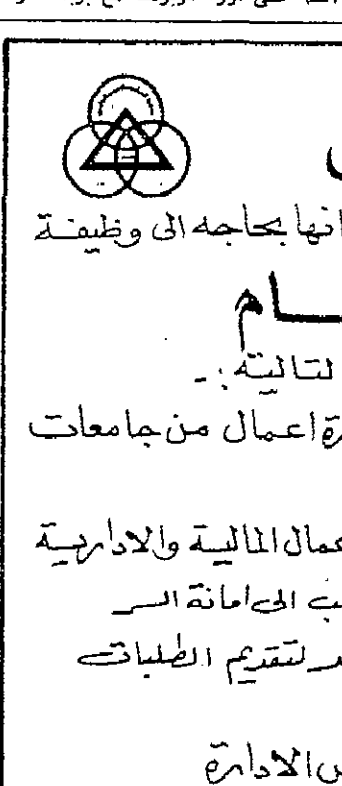 انها بحاجه الى وظيفة
ـام
لتالية :-
رة اعمال من جامعات
عمال المالية والادارية
ب الى امانة السر
ـد لتقديم الطلبات
س الادارة